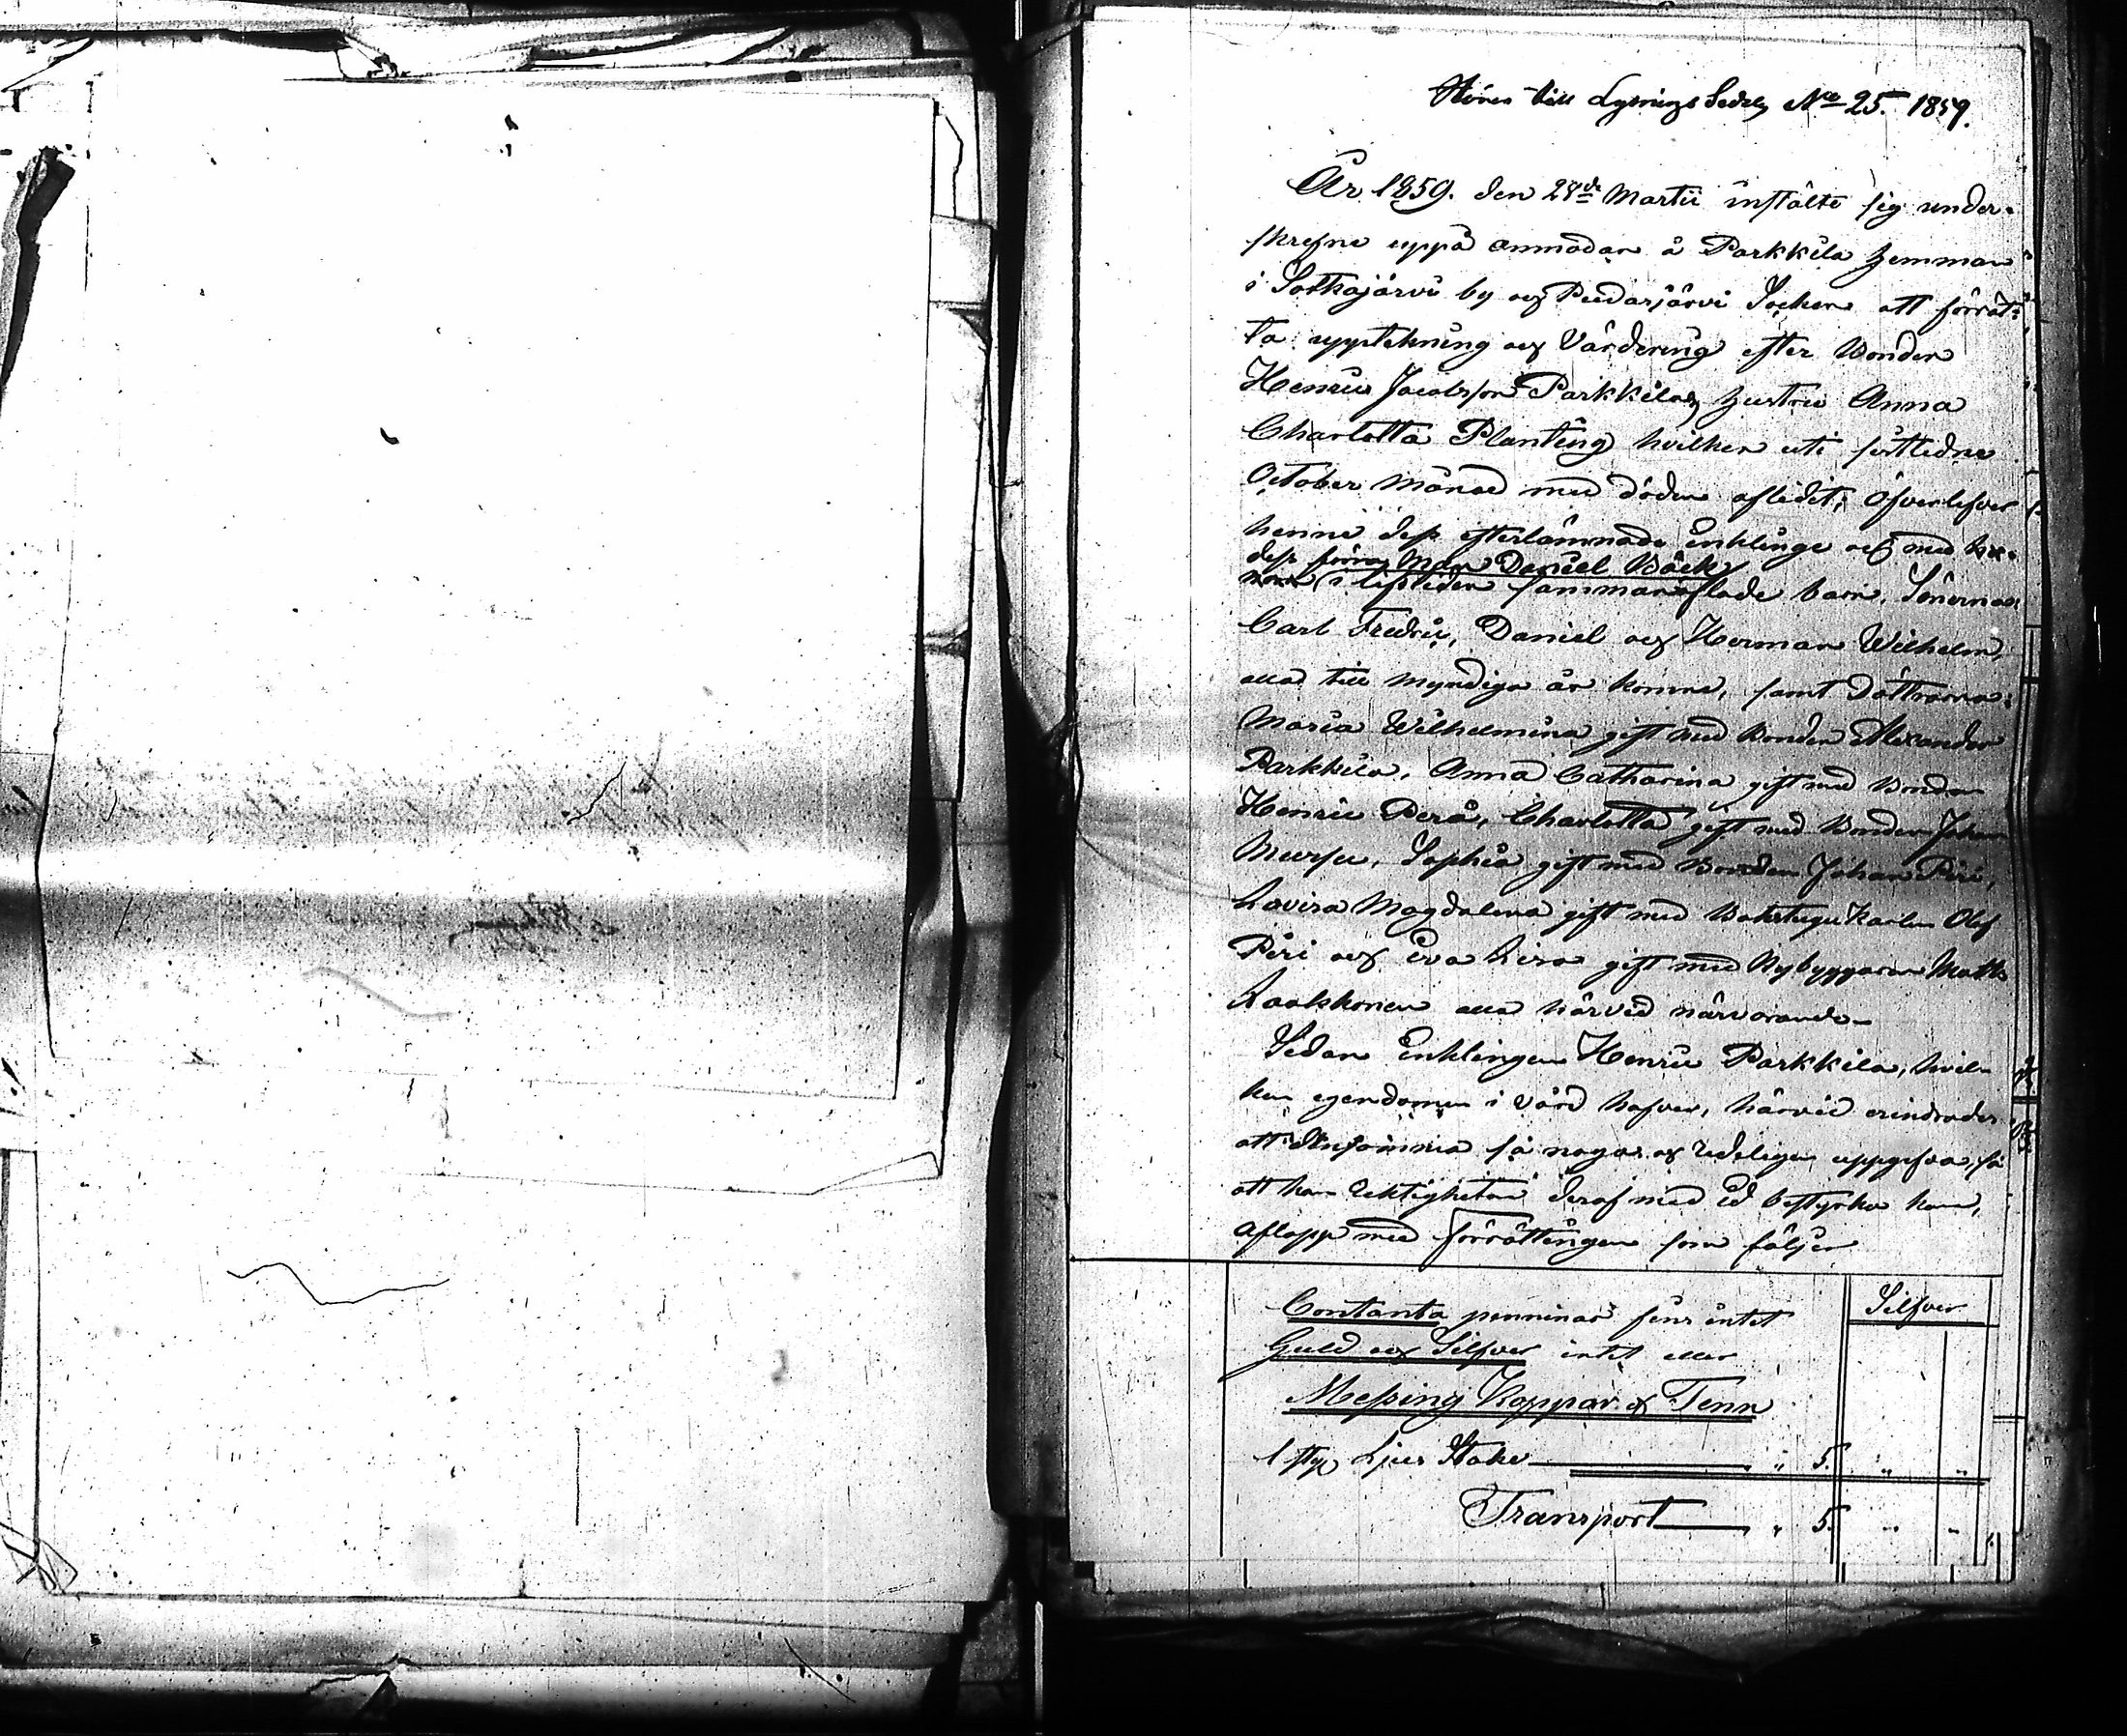 Hörer till Lysnings Sedel, No 25. 1859.
År 1859. den 28de Martii instälte sig under-
skrefne uppå anmodan å Parkkila hemman
i Sotkajärvi by och Pudasjärvi Socken att förrät-
ta uppteckning och Värdering efter Bonden
Henric Jacobsson Parkkilas hustru Anna
Charlotta Planting hvilken uti sistledne
October Månad med döden aflidit, öfverlefver
henne dess efterlämnade Enkling och med
dess förra Man Daniel Bäck
i lifstiden sammanaflade barn, Sönerna
Carl Fredric, Daniel och Herman Wilhelm,
alla till myndiga år komne, samt döttrarna:
Maria Wilhelmina gift med Bonden Alexander
Parkkila, Anna Catharina gift med Bonden
Henric Perä, Charlotta gift med Bonden Johan
Mursu, Sophia gift med Bonden Johan Piri,
Lovisa Magdalena gift med Backstugu Karlen Olof
Piri och Eva Lisa gift med Nybyggaren Matts
Laakkonen alla härvid närvarande.
Sedan Enklingen Henric Parkkila, hvil-
ken egendomen i vård hafver, härvid erindrades
att densamma så noga och redeligen uppgifva, så
att han riktigheten deraf med Ed bestyrka kan,
aflopp med förrättningen som följer
Silfver
Contanta penningar fins intet
Guld och Silfver intet eller
Messing Koppar & Tenn
1 st. Ljus Stake " 5. " "
Transport " 5. " "